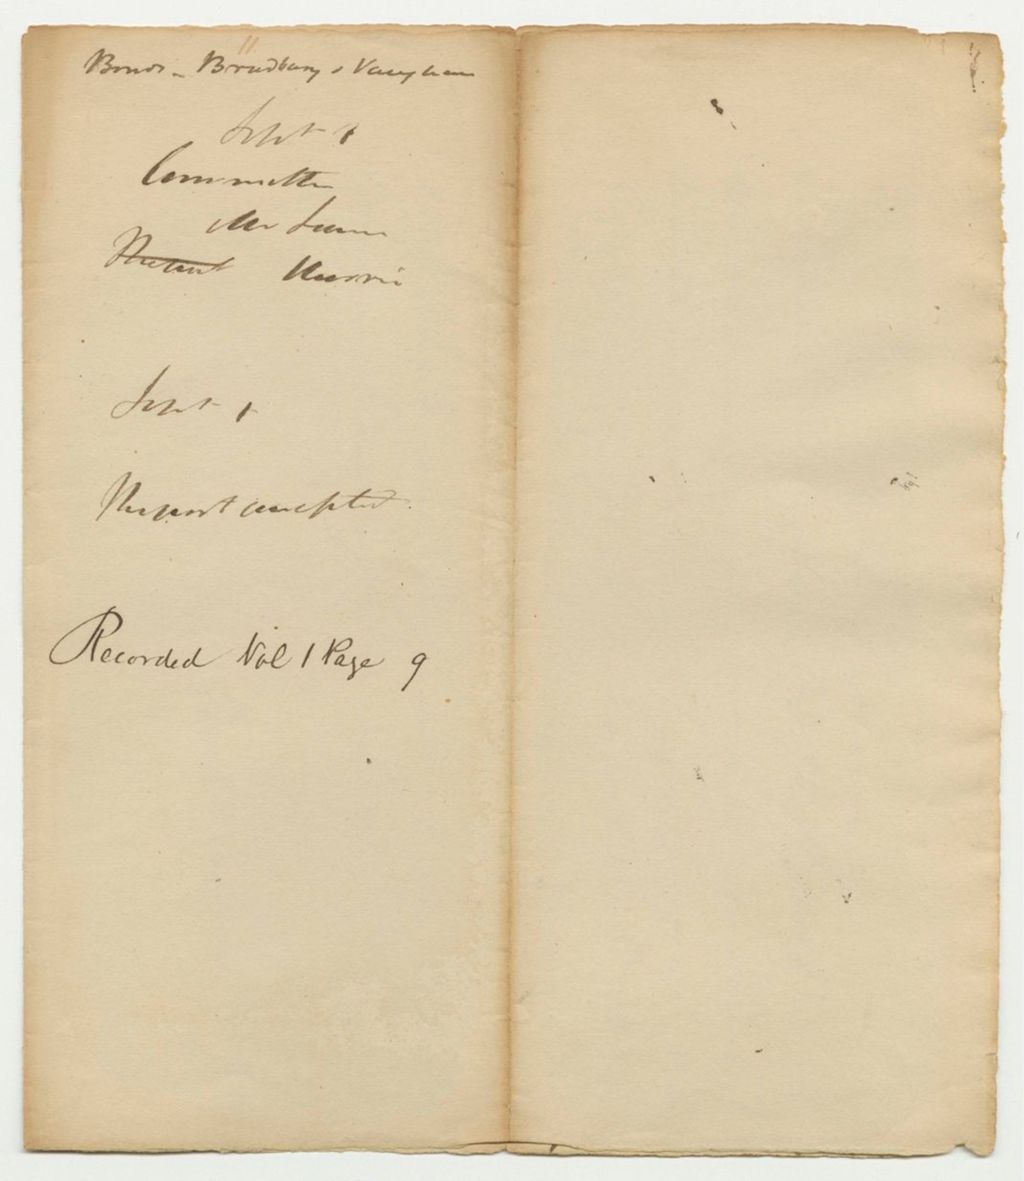 Bond - Bradbury & Vaughan
Sept 1
Committee
Mr
Morris
Sept 1
Report accepted.
Recorded Vol 1 Page 9